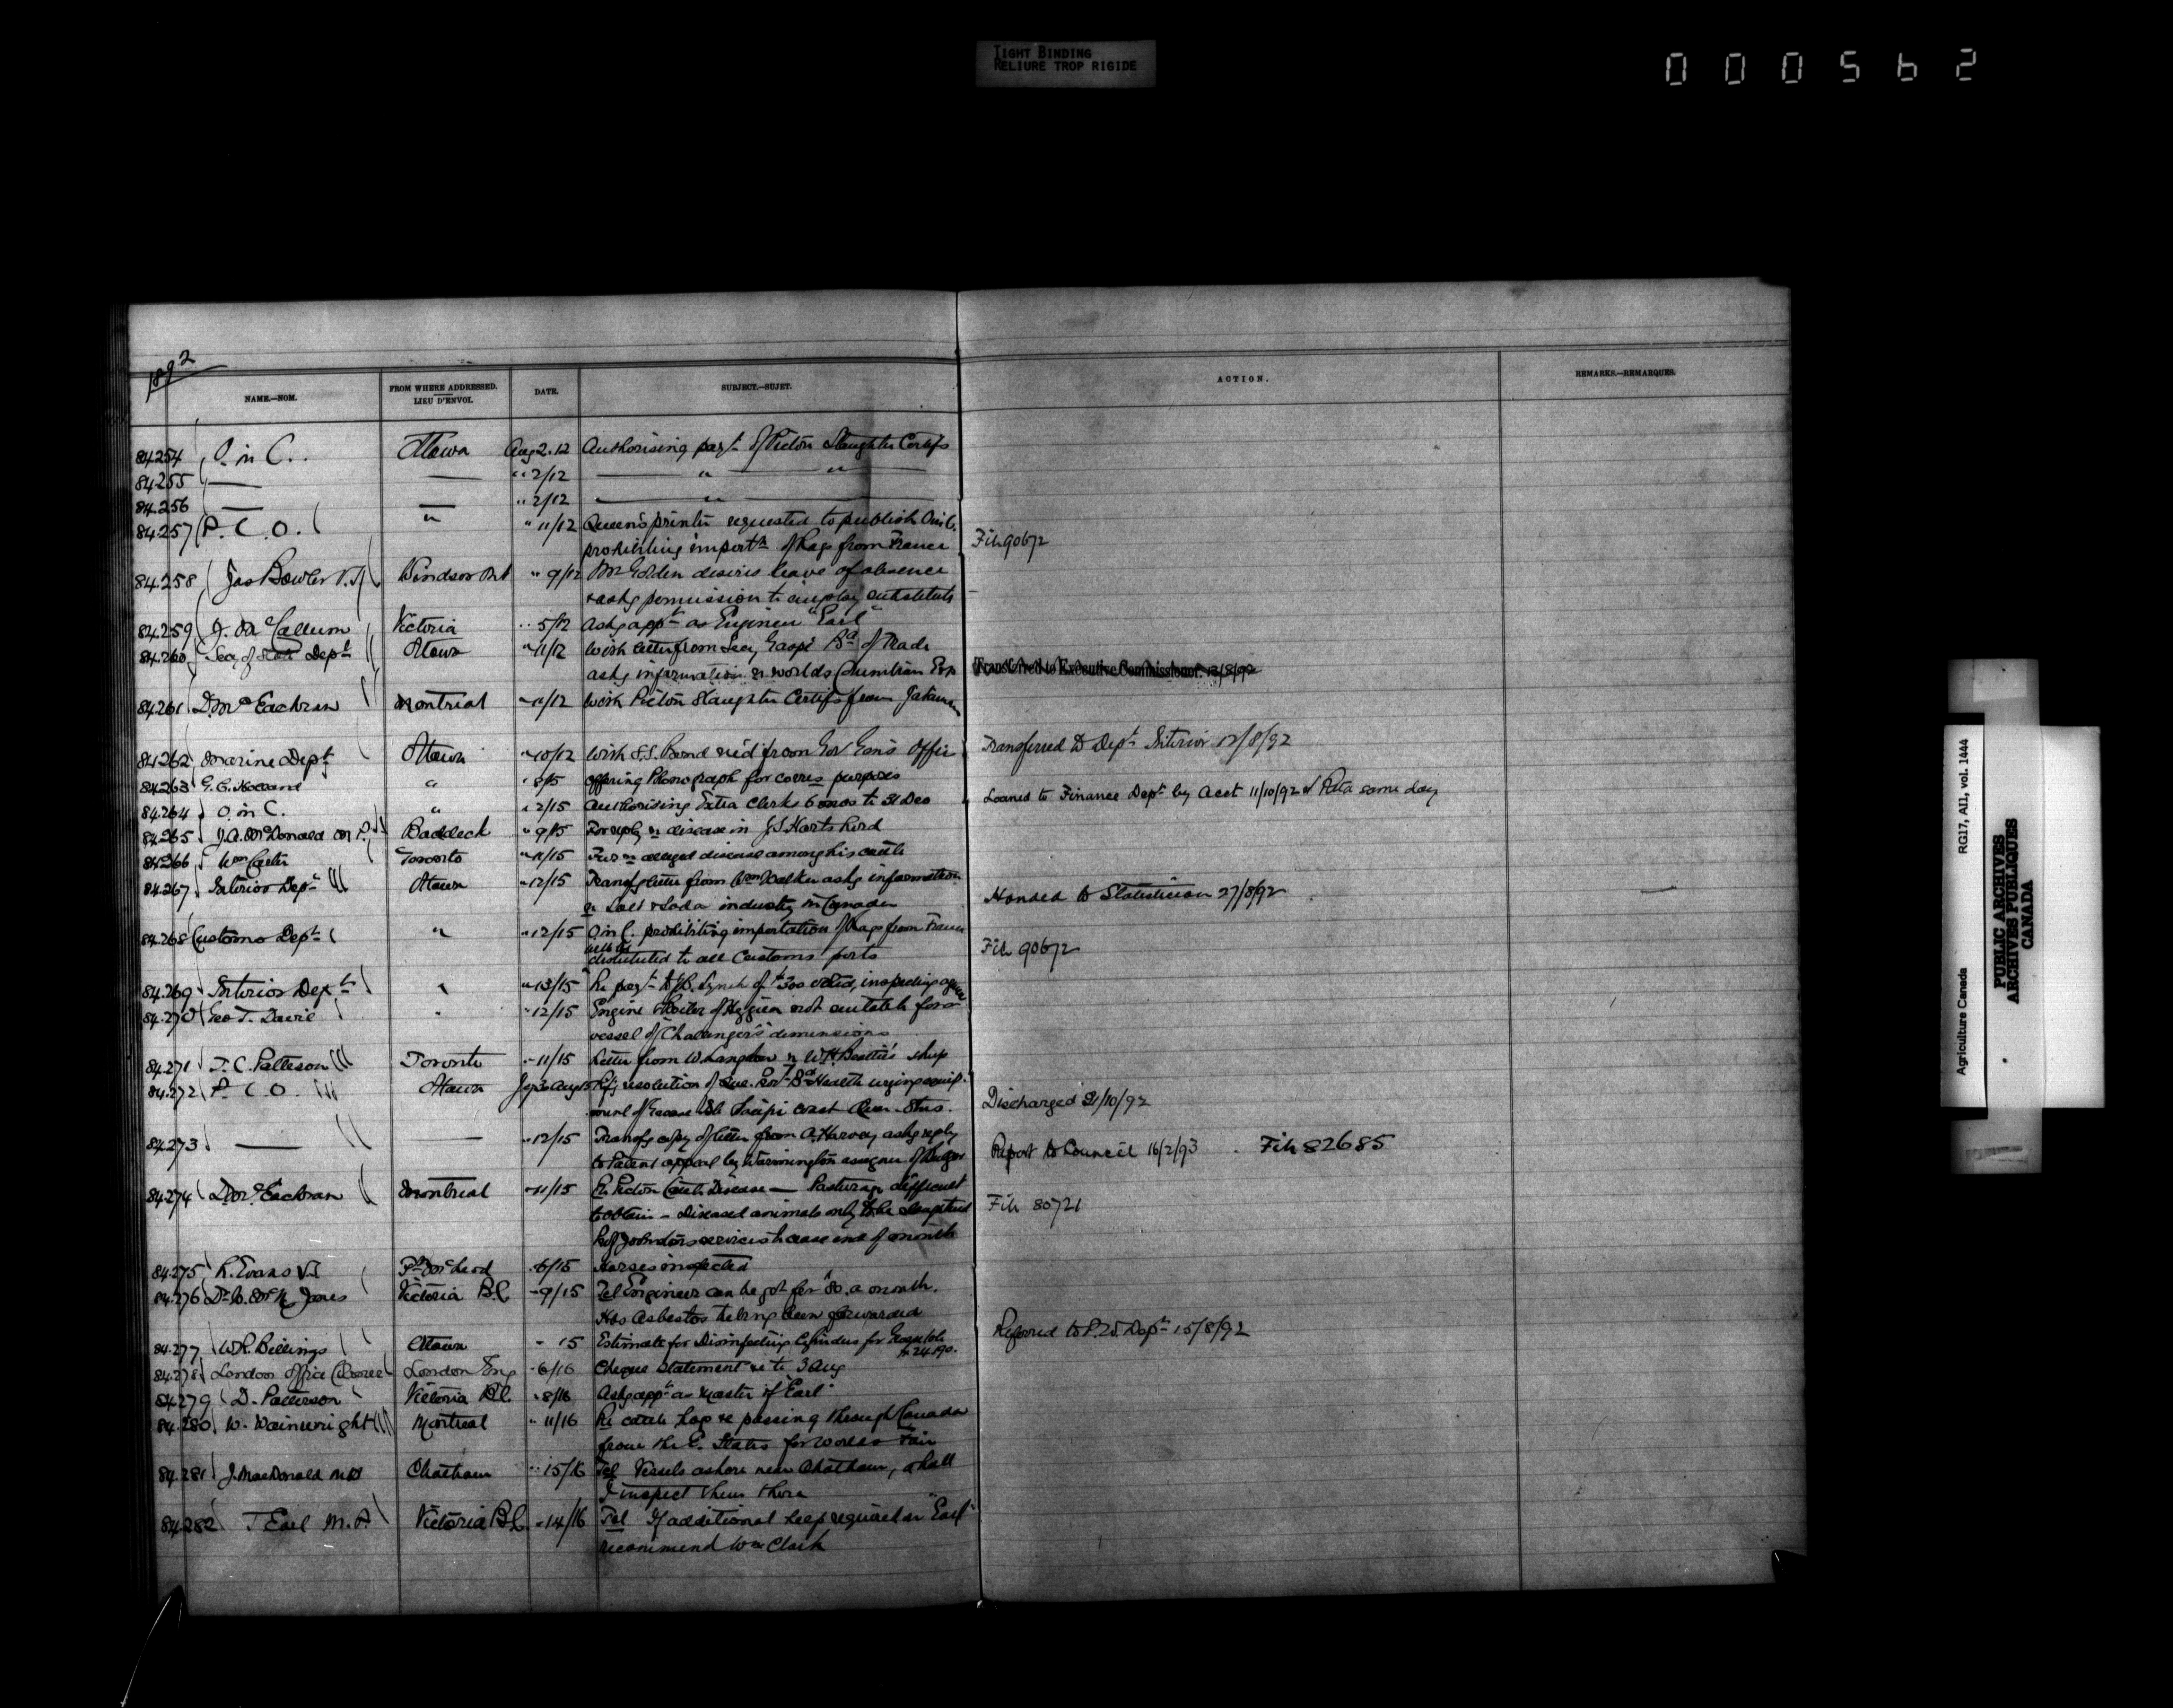 TIGHT BINDING
RELIURE TROP RIGIDE
000562
1892
NAME.—NOM. FROM WHERE ADDRESSED. LIEU D'ENVOI. DATE. SUBJECT.—SUJET. ACTION. REMARKS.—REMARQUES.
84254 O. in C. Ottawa Aug 2.12 Authorising payt of Pictou Slaughter Certifs
84255 — — " 2/12 — " — " —
84256 — — " 2/12 — " —
84257 P. C. O. " " 11/12 Queen's printer requested to publish O in C.
prohibiting importn of Rags from France File 90672
84258 Jas Bowler V.S. Windsor Ont " 9/12 Mr Golden desires leave of absence
& askg permission to employ substitute
84259 J. McCallum Victoria " 5/12 Askg appt as Engineer "Earl"
84260 Secy of State Dept Ottawa " 11/12 With letter from Secy Gaspé Bd of Trade
askg information re Worlds Columbian Exp Transferred to Executive Commissioner 13/8/92
84261 D. McEachran Montreal " 11/12 With Pictou Slaughter Certifs from Jakeman
84262 Marine Dept Ottawa " 10/12 With S.S. Bond rec'd from Gov Gen's Office Transferred to Dept Interior 12/8/92
84263 G. C. Holland " " 8/15 Offering Phonograph for corres purposes
84264 O. in C. " " 2/15 Authorising Extra Clerks 6 mos to 31 Dec Loaned to Finance Dept by Acct 11/10/92 & Retd same day
84265 J. A. McDonald M.P. Baddeck " 9/15 For reply re disease in J S Harts herd
84266 Wm Carter Toronto " 11/15 Fur re alleged disease among his cattle
84267 Interior Dept Ottawa " 12/15 Transfg letter from Wm Walker askg information
re Salt & Soda industry in Canada Handed to Statistician 27/8/92
84268 Customs Dept " " 12/15 O in C. prohibiting importation of Rags from France
will be
distributed to all Customs ports File 90672
84269 Interior Dept " " 13/15 Re payt to J.R. Lynch of $300 voted, inspecting agencies
84270 Geo T. Davie " " 12/15 Engine & Boiler of Hygiea not suitable for a
vessel of "Challenger's" dimensions
84271 T. C. Patteson Toronto " 11/15 Letter from W Langdon re W. H. Beattie's sheep
84272 P. C. O. Ottawa Aug 15 resolution of Que. Prov. Bd Health urging equip-
ment of Pacific coast Quar. Stns. Discharged 21/10/92
84273 — — " 12/15 Transfg copy of letter from A. Harvey askg reply
to Patent appeal by Warmington assignee of Report to Council 16/2/93 . File 82685
84274 D. McEachran Montreal " 11/15 Re Pictou Cattle Disease — Pasturage difficult
to obtain — Diseased animals only to be slaughtered File 80721
services to cease end of month
84275 R. Evans V.S. Ft McLeod " 6/15 Horses inspected
84276 Dr W. McN Jones Victoria B.C. " 9/15 Tel Engineer can be got for $80. a month.
Has Asbestos tubing been forwarded
84277 W R. Billings Ottawa " 15 Estimate for Disinfecting Cylinder for Grosse Isle Referred to P.W. Dept 15/8/92
$ 24.190.
84278 London Office London Eng " 6/16 Cheque Statement &c to 3 Aug
84279 D. Patterson Victoria B.C. " 8/16 Askg appt as Master of "Earl"
84280 W. Wainwright Montreal " 11/16 Re cattle hogs &c passing through Canada
from the E. States for Worlds Fair
84281 J. MacDonald M.D Chatham " 15/16 Tel Vessels ashore near Chatham, shall
I inspect them there
84282 T Earl M.P. Victoria B.C. " 14/16 Tel If additional help required on "Earl"
recommend Wm Clark
Agriculture Canada RG17, AII, vol. 1444
PUBLIC ARCHIVES
ARCHIVES PUBLIQUES
CANADA